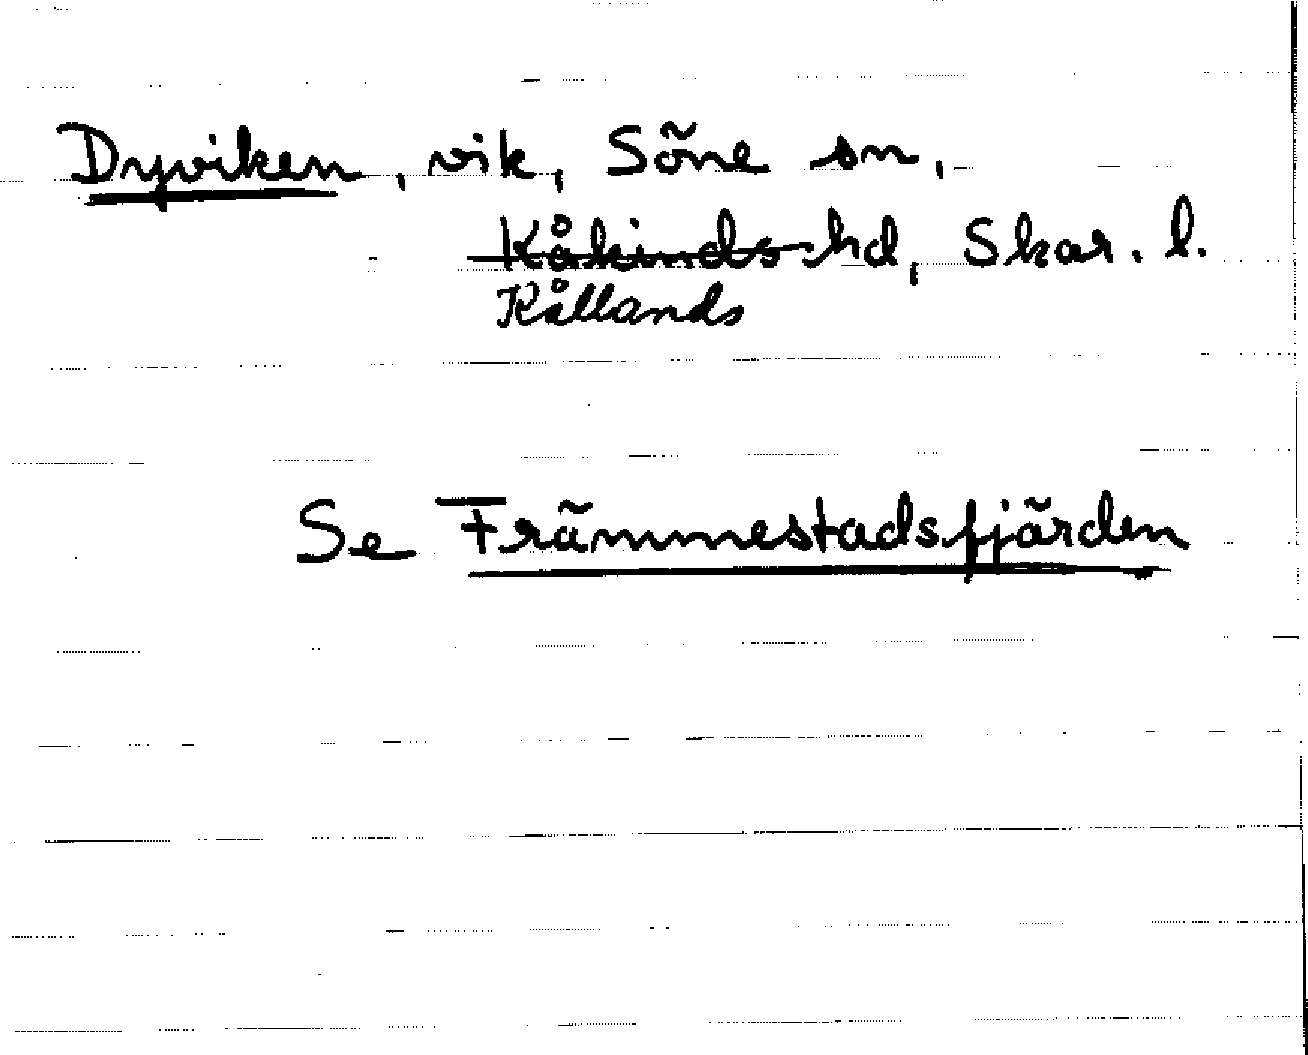 Dyviken, vik, Söne sn,
Kåkinds hd, Skar. l.
Kållands
Se Främmestadsfjärden